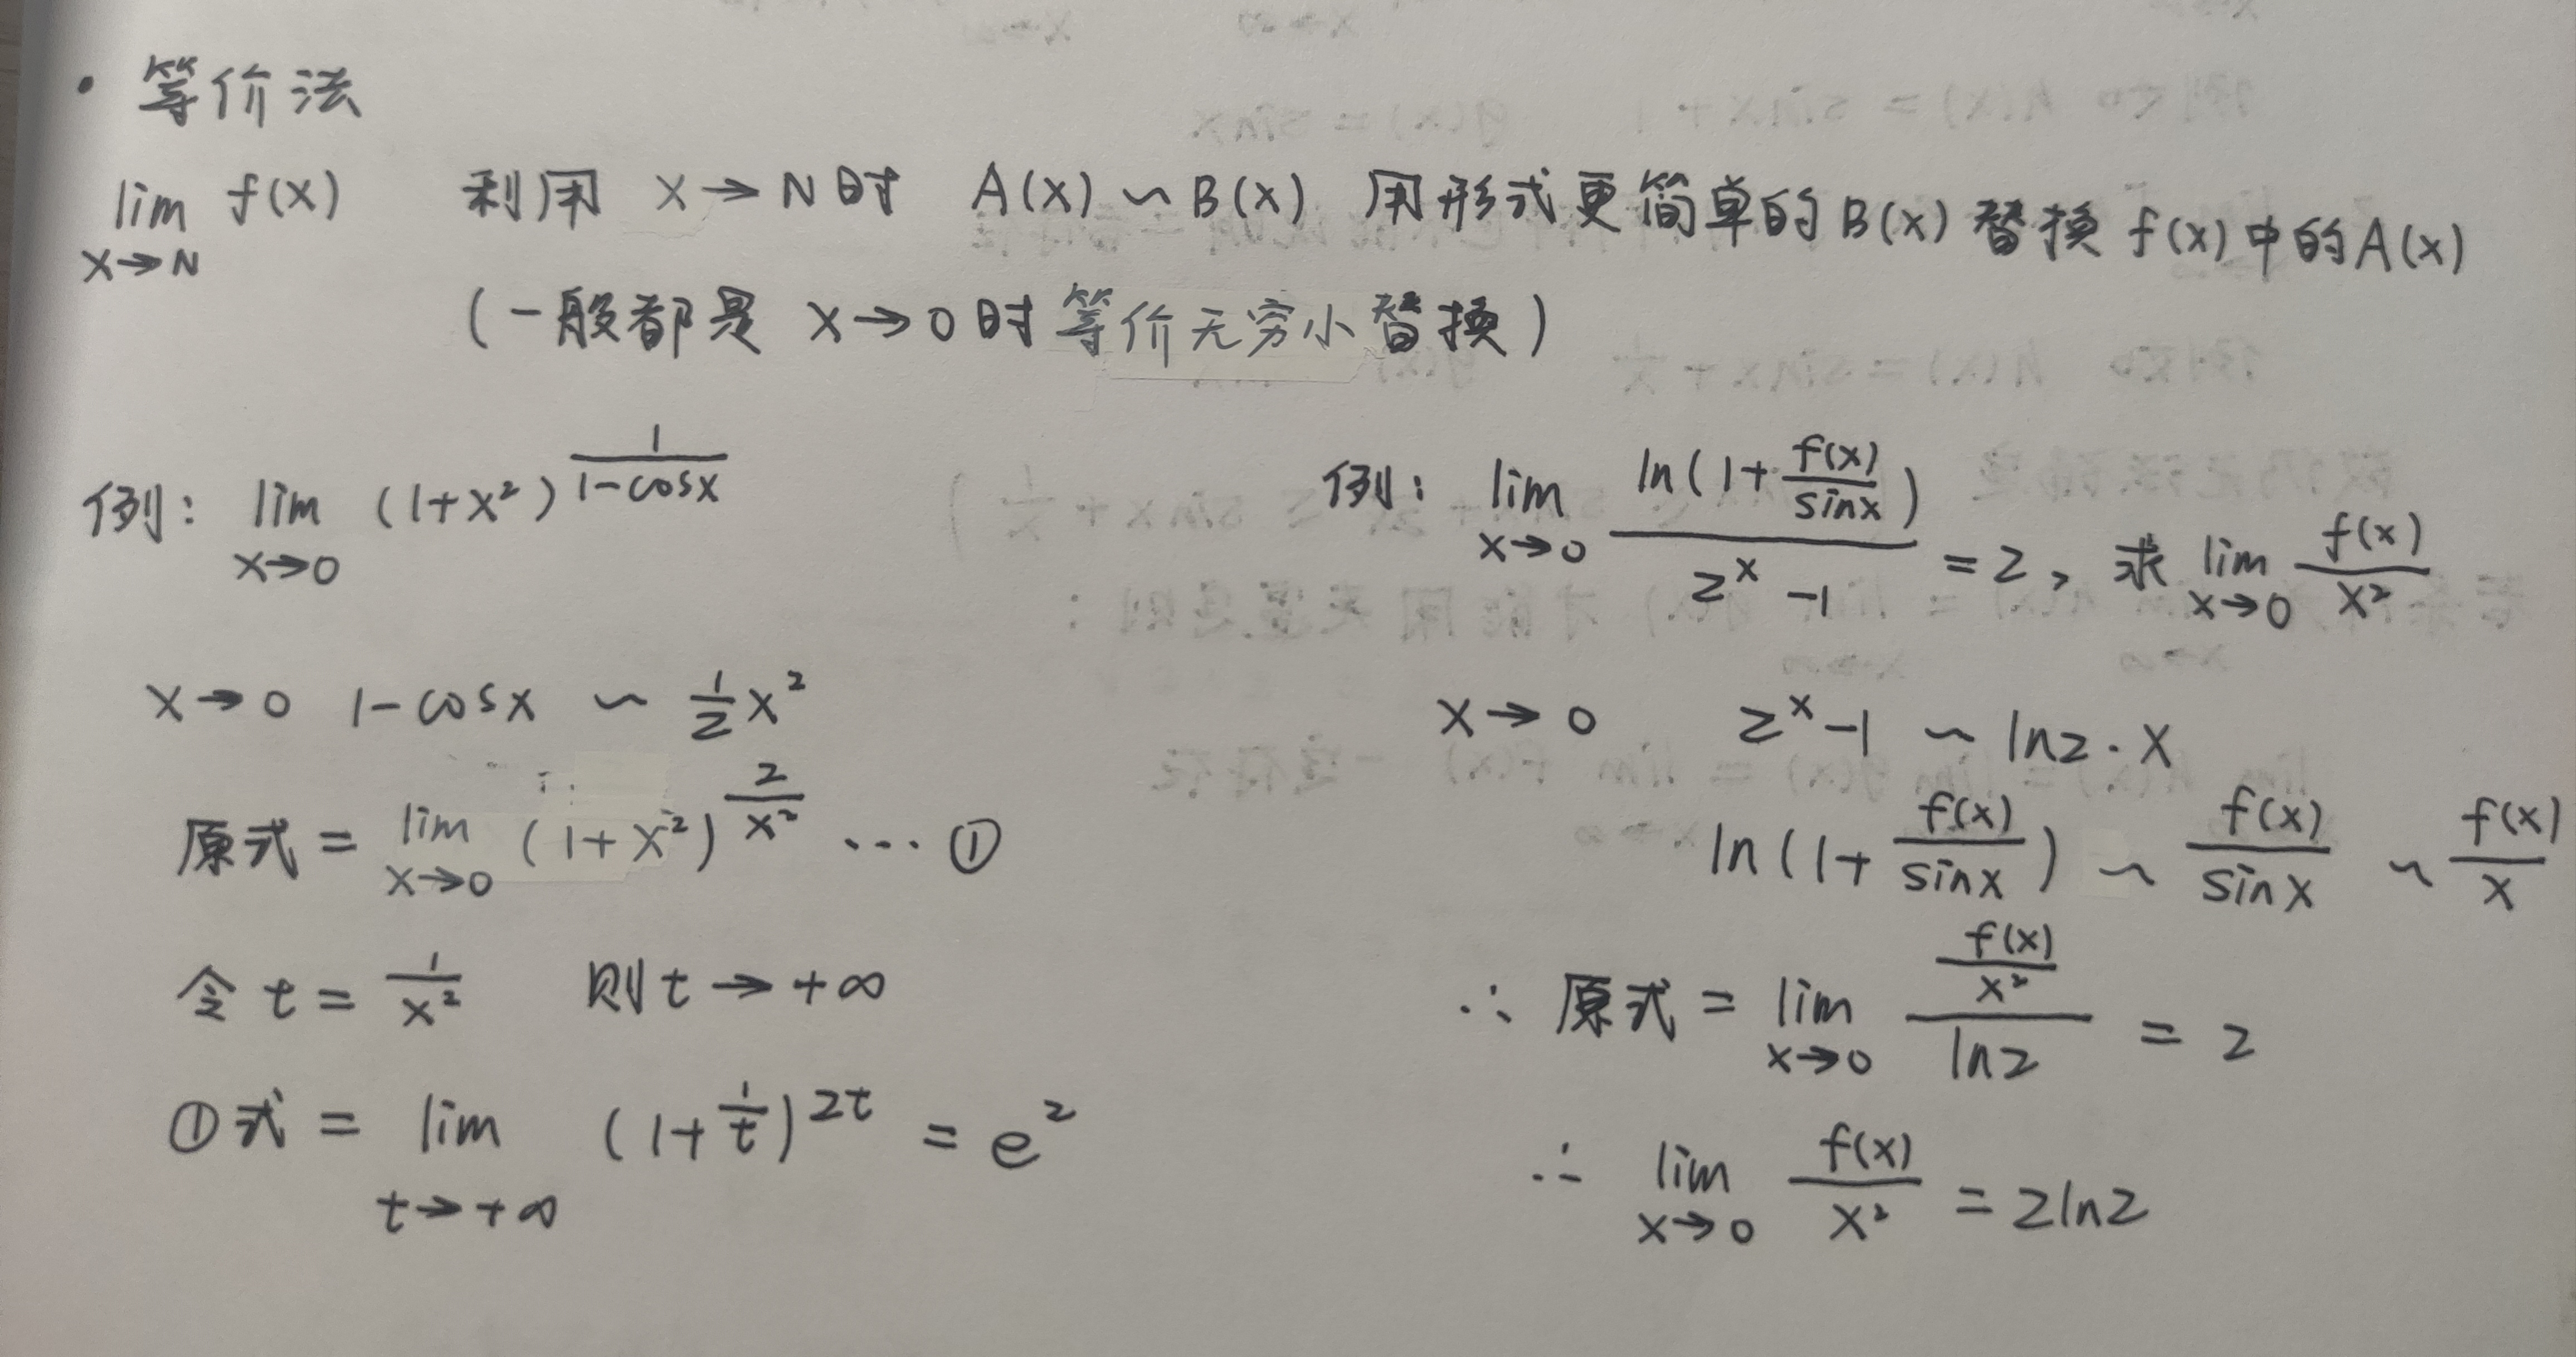 · 等价法
lim f(x) 利用 x→N时 A(x)∽B(x) 用形式更简单的B(x)替换f(x)中的A(x)
x→N
(一般都是 x→0时等价无穷小替换)
例: lim (1+x²)^(1/(1-cosx))
x→0
x→0 1-cosx ∽ 1/2 x²
原式 = lim (1+x²)^(2/x²) ... ①
x→0
令 t = 1/x² 则 t→+∞
①式 = lim (1+1/t)^(2t) = e²
t→+∞
例: lim ln(1+f(x)/sinx)/(2^x -1) = 2, 求 lim f(x)/x²
x→0 x→0
x→0 2^x-1 ∽ ln2·x
ln(1+f(x)/sinx) ∽ f(x)/sinx ∽ f(x)/x
∴ 原式 = lim (f(x)/x²)/ln2 = 2
x→0
∴ lim f(x)/x² = 2ln2
x→0